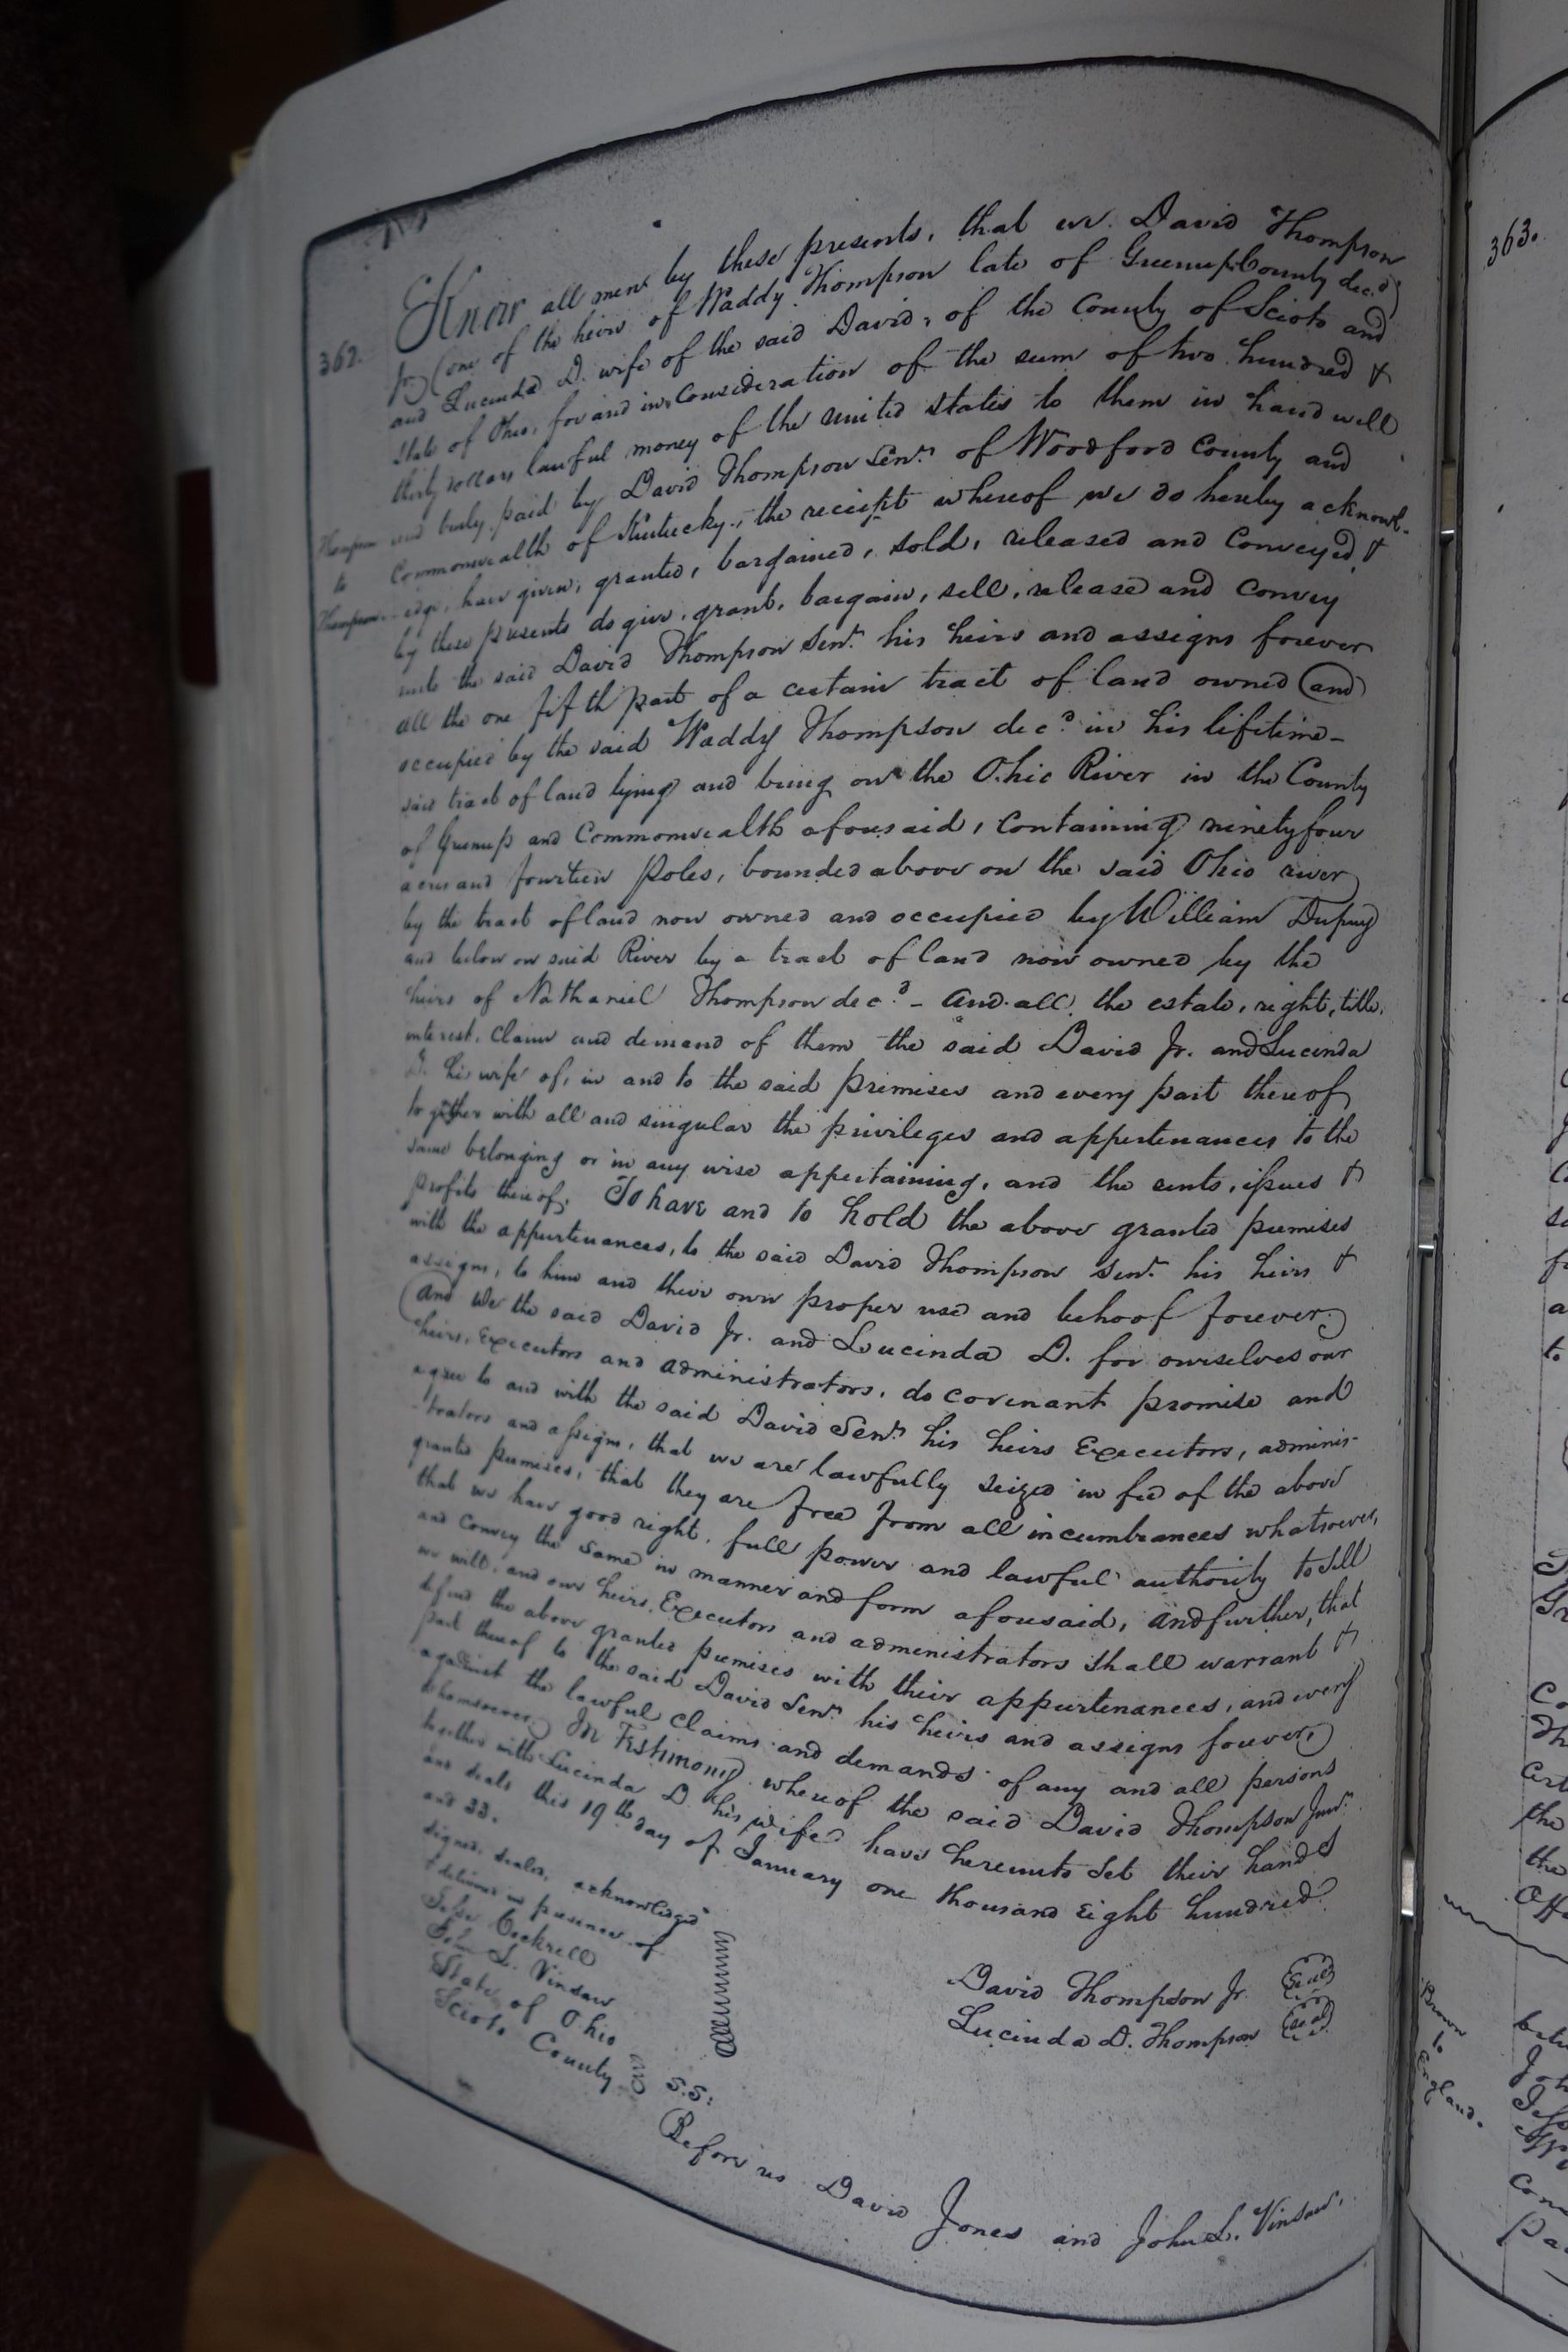 362.
Know all men by these presents, that we David Thompson
Jr. (one of the heirs of Waddy Thompson late of Greenup County dec.d)
and Lucinda D. wife of the said David, of the County of Scioto and
State of Ohio, for and in consideration of the sum of two hundred &
thirty dollars lawful money of the united states to them in hand well
and truly paid by David Thompson Senr. of Woodford County and
Commonwealth of Kentucky, the receipt whereof we do hereby acknowl-
edge, have given, granted, bargained, sold, released and Conveyed, &
by these presents do give, grant, bargain, sell, release and convey
unto the said David Thompson Senr. his heirs and assigns forever
all the one fifth part of a certain tract of land owned and
occupied by the said Waddy Thompson decd. in his lifetime-
said tract of land lying and being on the Ohio River in the County
of Greenup and Commonwealth aforesaid, containing ninety four
acres and fourteen Poles, bounded above on the said Ohio river
by the tract of land now owned and occupied by William Dupuy
and below on said River by a tract of land now owned by the
heirs of Nathaniel Thompson decd. - And all the estate, right, title,
interest, claim and demand of them the said David Jr. and Lucinda
D. his wife of, in and to the said premises and every part thereof
together with all and singular the privileges and appertenances to the
same belonging or in any wise appertaining, and the rents, issues &
profits thereof. To have and to hold the above granted premises
with the appurtenances, to the said David Thompson Senr. his heirs &
assigns, to him and their own proper use and behoof forever.
And we the said David Jr. and Lucinda D. for ourselves our
heirs, Executors and administrators, do covenant promise and
agree to and with the said David Senr. his heirs Executors, adminis-
trators and assigns, that we are lawfully seized in fee of the above
granted premises, that they are free from all incumbrances whatsoever,
that we have good right, full power and lawful authority to sell
and convey the same in manner and form aforesaid, and further, that
we will, and our heirs, Executors and administrators shall warrant &
defend the above granted premises with their appurtenances, and every
part thereof to the said David Senr. his heirs and assigns forever,
against the lawful claims and demands of any and all persons
whomsoever. In Testimony whereof the said David Thompson Junr.
together with Lucinda D. his wife have hereunto set their hands
and seals this 19th day of January one thousand Eight hundred
and 33.
signed, sealed, acknowledged
& delivered in presence of
Jesse Cockrell
John L. Vinsaw
David Thompson Jr. Seal
Lucinda D. Thompson Seal
State of Ohio
Scioto County S.S:
Before us David Jones and John L. Vinsaw,
Thompson
to
Thompson
363.
Brown
to
England.